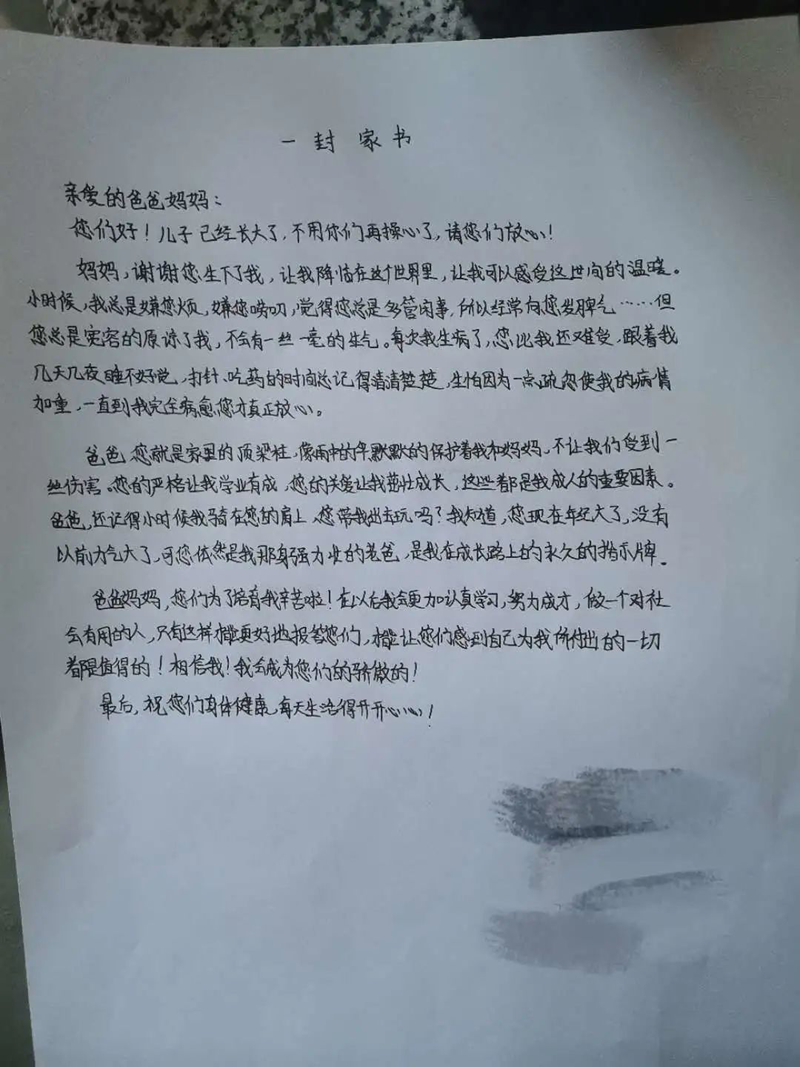 一封家书
亲爱的爸爸妈妈：
您们好！儿子已经长大了，不用你们再操心了，请您们放心！
妈妈，谢谢您生下了我，让我降临在这个世界里，让我可以感受这世间的温暖。
小时候，我总是嫌您烦，嫌您唠叨，觉得您总是多管闲事，所以经常向您发脾气……但
您总是宽容的原谅了我，不会有一丝一毫的生气。每次我生病了，您比我还难受，跟着我
几天几夜睡不好觉，打针、吃药的时间总记得清清楚楚，生怕因为一点疏忽使我的病情
加重，一直到我完全病愈您才真正放心。
爸爸，您就是家里的顶梁柱，像雨中的伞默默的保护着我和妈妈，不让我们受到一
丝伤害。您的严格让我学业有成，您的关爱让我茁壮成长，这些都是我成人的重要因素。
爸爸，还记得小时候我骑在您的肩上，您带我出去玩吗？我知道，您现在年纪大了，没有
以前力气大了，可您依然是我那身强力壮的老爸，是我在成长路上的永久的指示牌。
爸爸妈妈，您们为了培育我辛苦啦！在以后我会更加认真学习，努力成才，做一个对社
会有用的人，只有这样才能更好地报答您们，才能让您们感到自己为我所付出的一切
都是值得的！相信我！我会成为您们的骄傲的！
最后，祝您们身体健康，每天生活得开开心心！